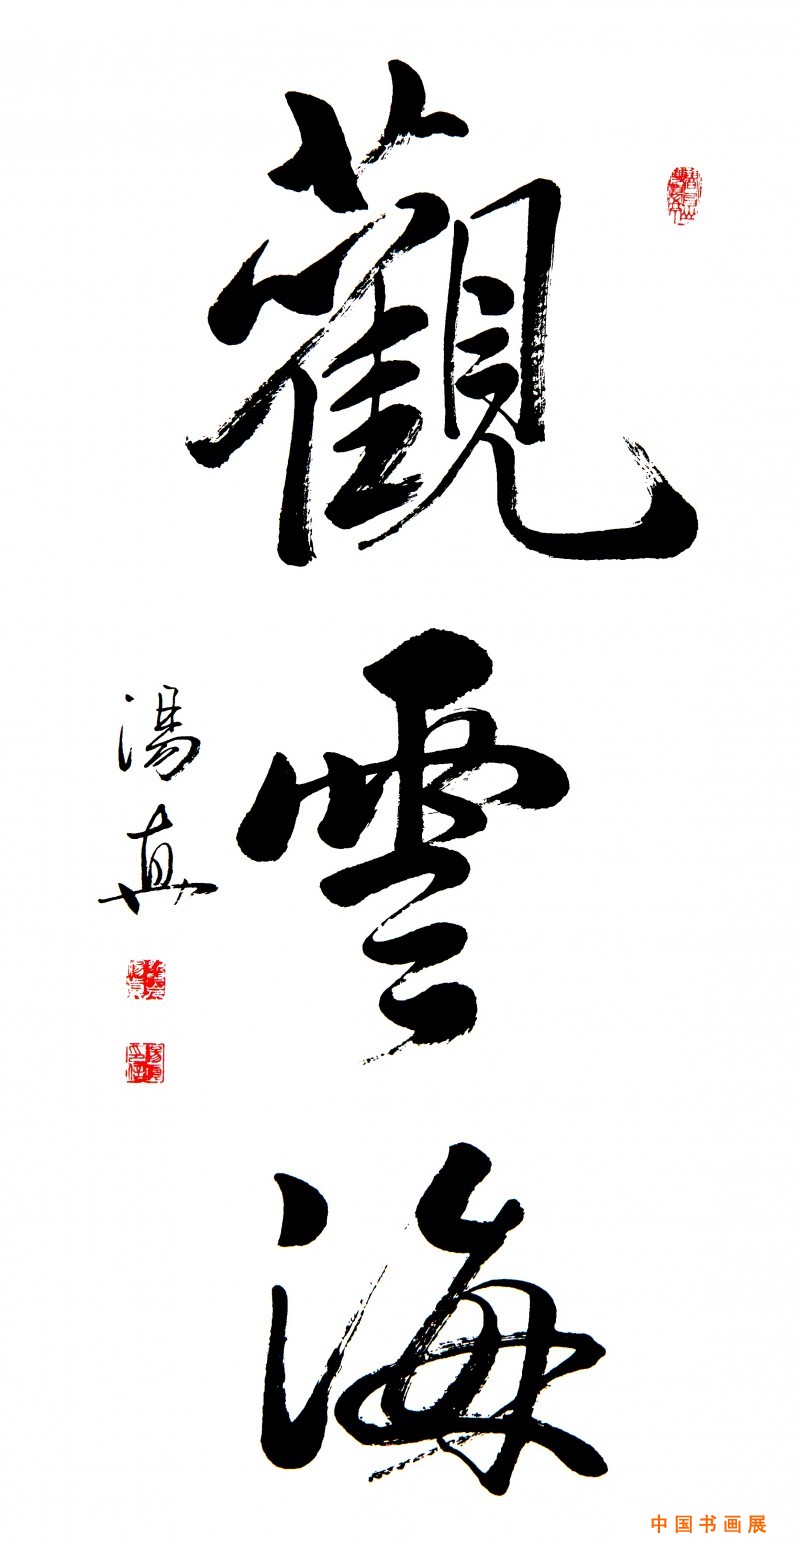 觀雲海
湯真
中国书画展